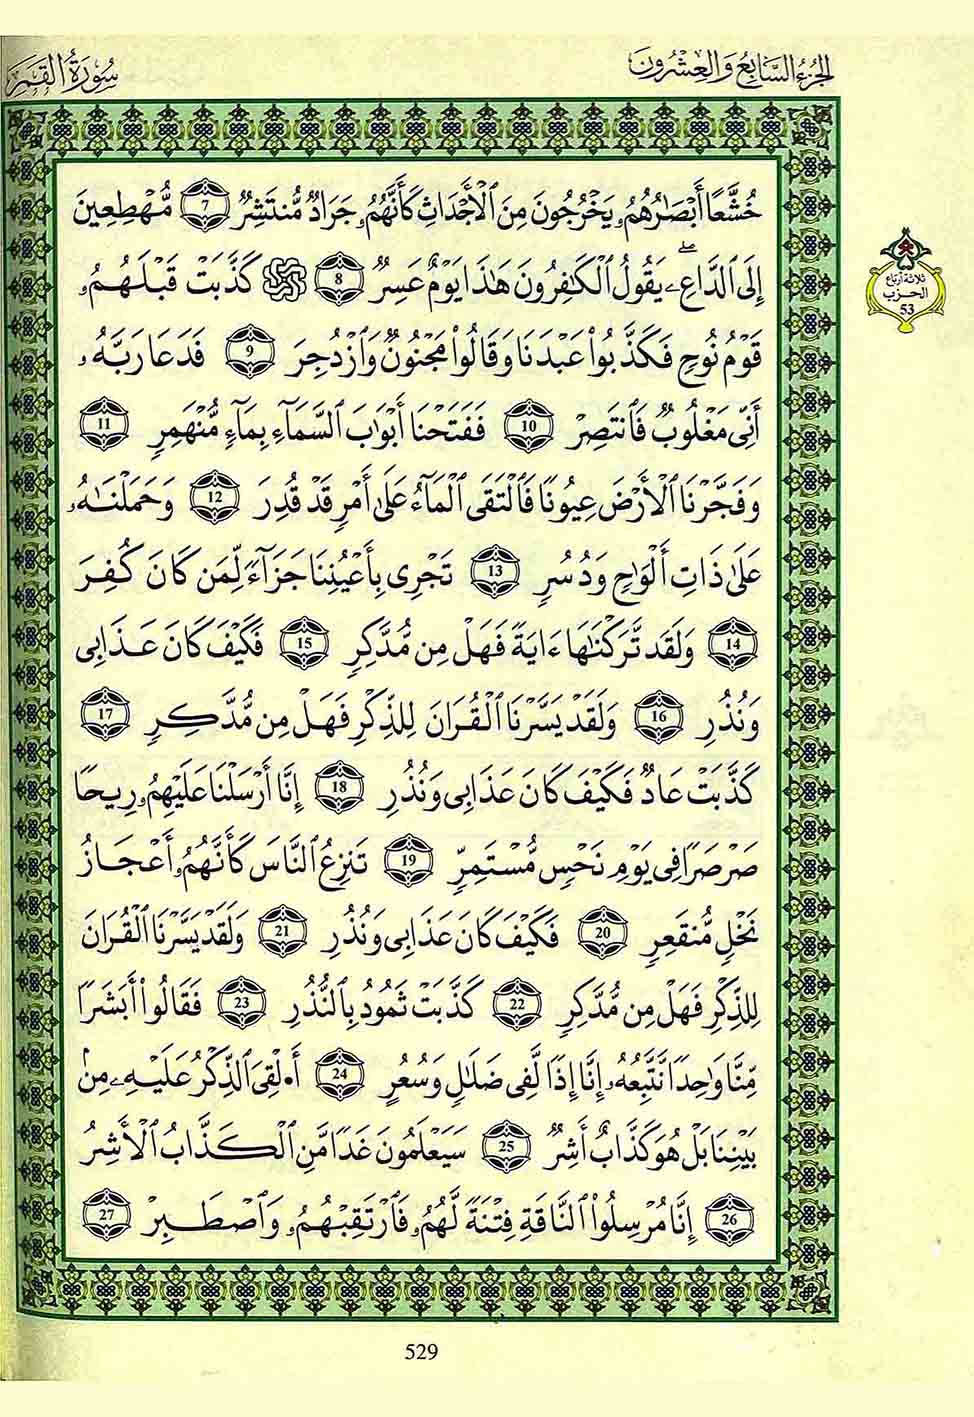 الجزء السابع والعشرون
سورة القمر
خُشَّعًا أَبْصَٰرُهُمُۥ يَخْرُجُونَ مِنَ ٱلْأَجْدَاثِ كَأَنَّهُمُۥ جَرَادٌ مُّنتَشِرٌ 7 مُّهْطِعِينَ
إِلَى ٱلدَّاعِۦ يَقُولُ ٱلْكَٰفِرُونَ هَٰذَا يَوْمٌ عَسِرٌ 8 ۞ كَذَّبَتْ قَبْلَهُمُۥ
قَوْمُ نُوحٍ فَكَذَّبُوا۟ عَبْدَنَا وَقَالُوا۟ مَجْنُونٌ وَٱزْدُجِرَ 9 فَدَعَا رَبَّهُۥ
أَنِّى مَغْلُوبٌ فَٱنتَصِرْ 10 فَفَتَحْنَا أَبْوَٰبَ ٱلسَّمَآءِ بِمَآءٍ مُّنْهَمِرٍ 11
وَفَجَّرْنَا ٱلْأَرْضَ عِيُونًا فَٱلْتَقَى ٱلْمَآءُ عَلَىٰ أَمْرٍ قَدْ قُدِرَ 12 وَحَمَلْنَٰهُۥ
عَلَىٰ ذَاتِ أَلْوَٰحٍ وَدُسُرٍ 13 تَجْرِى بِأَعْيُنِنَا جَزَآءً لِّمَن كَانَ كُفِرَ
14 وَلَقَد تَّرَكْنَٰهَا ءَايَةً فَهَلْ مِن مُّدَّكِرٍ 15 فَكَيْفَ كَانَ عَذَابِى
وَنُذُرِ 16 وَلَقَدْ يَسَّرْنَا ٱلْقُرَانَ لِلذِّكْرِ فَهَلْ مِن مُّدَّكِرٍ 17
كَذَّبَتْ عَادٌ فَكَيْفَ كَانَ عَذَابِى وَنُذُرِ 18 إِنَّا أَرْسَلْنَا عَلَيْهِمُۥ رِيحًا
صَرْصَرًا فِى يَوْمِ نَحْسٍ مُّسْتَمِرٍّ 19 تَنزِعُ ٱلنَّاسَ كَأَنَّهُمُۥ أَعْجَازُ
نَخْلٍ مُّنقَعِرٍ 20 فَكَيْفَ كَانَ عَذَابِى وَنُذُرِ 21 وَلَقَدْ يَسَّرْنَا ٱلْقُرَانَ
لِلذِّكْرِ فَهَلْ مِن مُّدَّكِرٍ 22 كَذَّبَتْ ثَمُودُ بِٱلنُّذُرِ 23 فَقَالُوا۟ أَبَشَرًا
مِّنَّا وَٰحِدًا نَّتَّبِعُهُۥ إِنَّا إِذًا لَّفِى ضَلَٰلٍ وَسُعُرٍ 24 أَ•لْقِىَ ٱلذِّكْرُ عَلَيْهِۦ مِنۢ
بَيْنِنَا بَلْ هُوَ كَذَّابٌ أَشِرٌ 25 سَيَعْلَمُونَ غَدًا مَّنِ ٱلْكَذَّابُ ٱلْأَشِرُ
26 إِنَّا مُرْسِلُوا۟ ٱلنَّاقَةِ فِتْنَةً لَّهُمُۥ فَٱرْتَقِبْهُمُۥ وَٱصْطَبِرْ 27
ثلاثة أرباع
الحزب
53
529